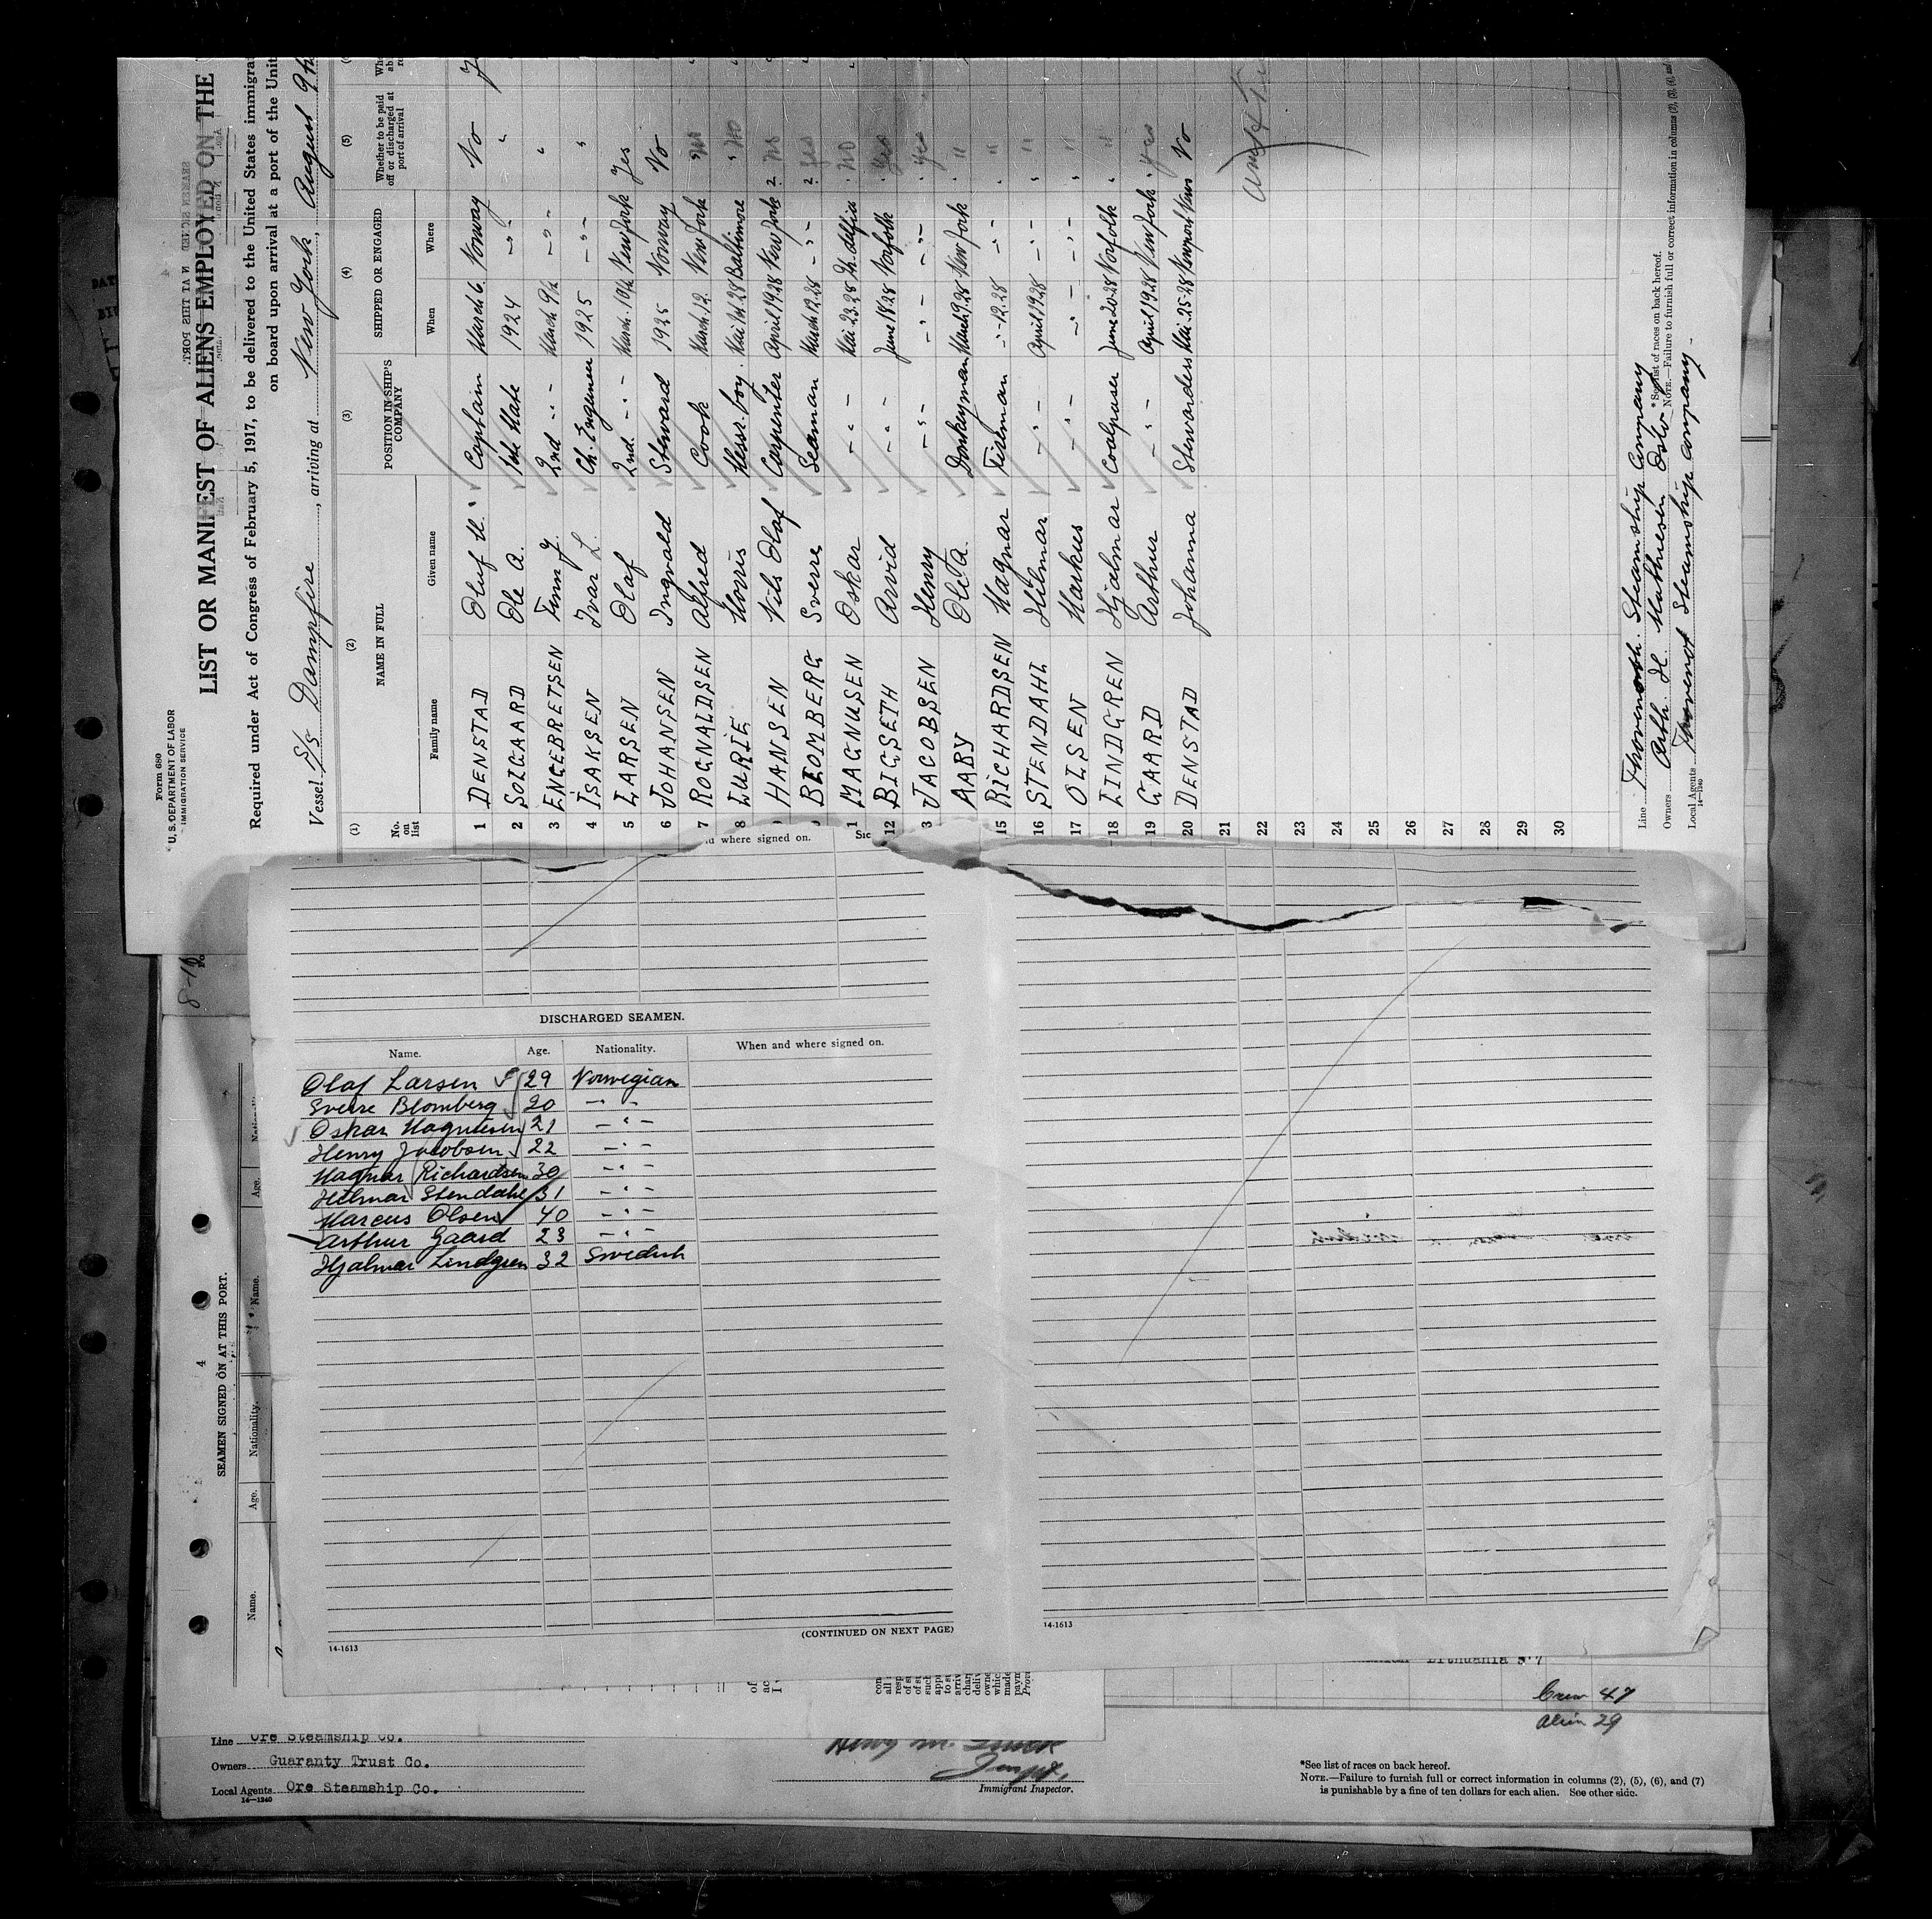 Form 680
U. S. DEPARTMENT OF LABOR
IMMIGRATION SERVICE
LIST OR MANIFEST OF ALIENS EMPLOYED ON THE
Required under Act of Congress of February 5, 1917, to be delivered to the United States immigrat
on board upon arrival at a port of the Unit
Vessel S/S Dampfire, arriving at New York, August 9th
(1) (2) (3) (4) (5)
No. on list NAME IN FULL POSITION IN SHIP'S COMPANY SHIPPED OR ENGAGED Whether to be paid off or discharged at port of arrival
Family name Given name When Where
1 DENSTAD Oluf M. Captain March 6 Norway No
2 SOLGAARD Ole A. 1st Mate 1924 -"- "
3 ENGEBRETSEN Finn J. 2nd -"- March 9th -"- "
4 ISAKSEN Ivar L. Ch. Engineer 1925 -"- "
5 LARSEN Olaf 2nd. -"- March 10th New York Yes
6 JOHANSEN Ingvald Steward 1925 Norway No
7 ROGNALDSEN Alfred Cook March 12 New York No
8 LURIE Morris Messr. boy. Baltimore No
HANSEN Nils Olaf Carpenter April 19.28 New York No
BLOMBERG Sverre Seaman March 12.28 -"- Yes
1 MAGNUSEN Oskar -"- Mai. 23.28 No
12 BIGSETH Arvid -"- June 18.28 Norfolk Yes
3 JACOBSEN Henry -"- -"- -"- Yes
AABY Ole A. Donkeyman March 9.28 New York "
15 RICHARDSEN Magnar Fireman -"- 12.28 -"- "
16 STENDAHL Hilmar -"- April 19.28 -"- "
17 OLSEN Markus -"- -"- -"- "
18 LINDGREN Hjalmar Coalpaser June 20-28 Norfolk "
19 GAARD Arthur -"- April 19.28 New York Yes
20 DENSTAD Johanna Stewardess Mai. 25-28 Newport News No
21
22
23
24
25
26
27
28
29
30
Line Steamship Company
Owners Arth. H. Mathiesen Oslo
Local Agents Steamship Company
14-1240
* See list of races on back hereof.
NOTE.—Failure to furnish full or correct information in columns (2), (3), (4) and
where signed on.
DISCHARGED SEAMEN.
Name. Age. Nationality. When and where signed on.
Olaf Larsen 29 Norwegian
Sverre Blomberg 20 -"-
Oskar Magnusen 21 -"-
Henry Jacobsen 22 -"-
Magnar Richardsen 30 -"-
Hilmar Stendahl 31 -"-
Marcus Olsen 40 -"-
Arthur Gaard 23 -"-
Hjalmar Lindgren 32 Swedish
(CONTINUED ON NEXT PAGE)
14-1613
14-1613
4
SEAMEN SIGNED ON AT THIS PORT.
Name. Age. Nationality. Name. Age.
Lithuania
Crew 47
Alien 29
Line Ore Steamship Co.
Owners Guaranty Trust Co.
Local Agents Ore Steamship Co.
14-1240
Immigrant Inspector.
*See list of races on back hereof.
NOTE.—Failure to furnish full or correct information in columns (2), (5), (6), and (7)
is punishable by a fine of ten dollars for each alien. See other side.